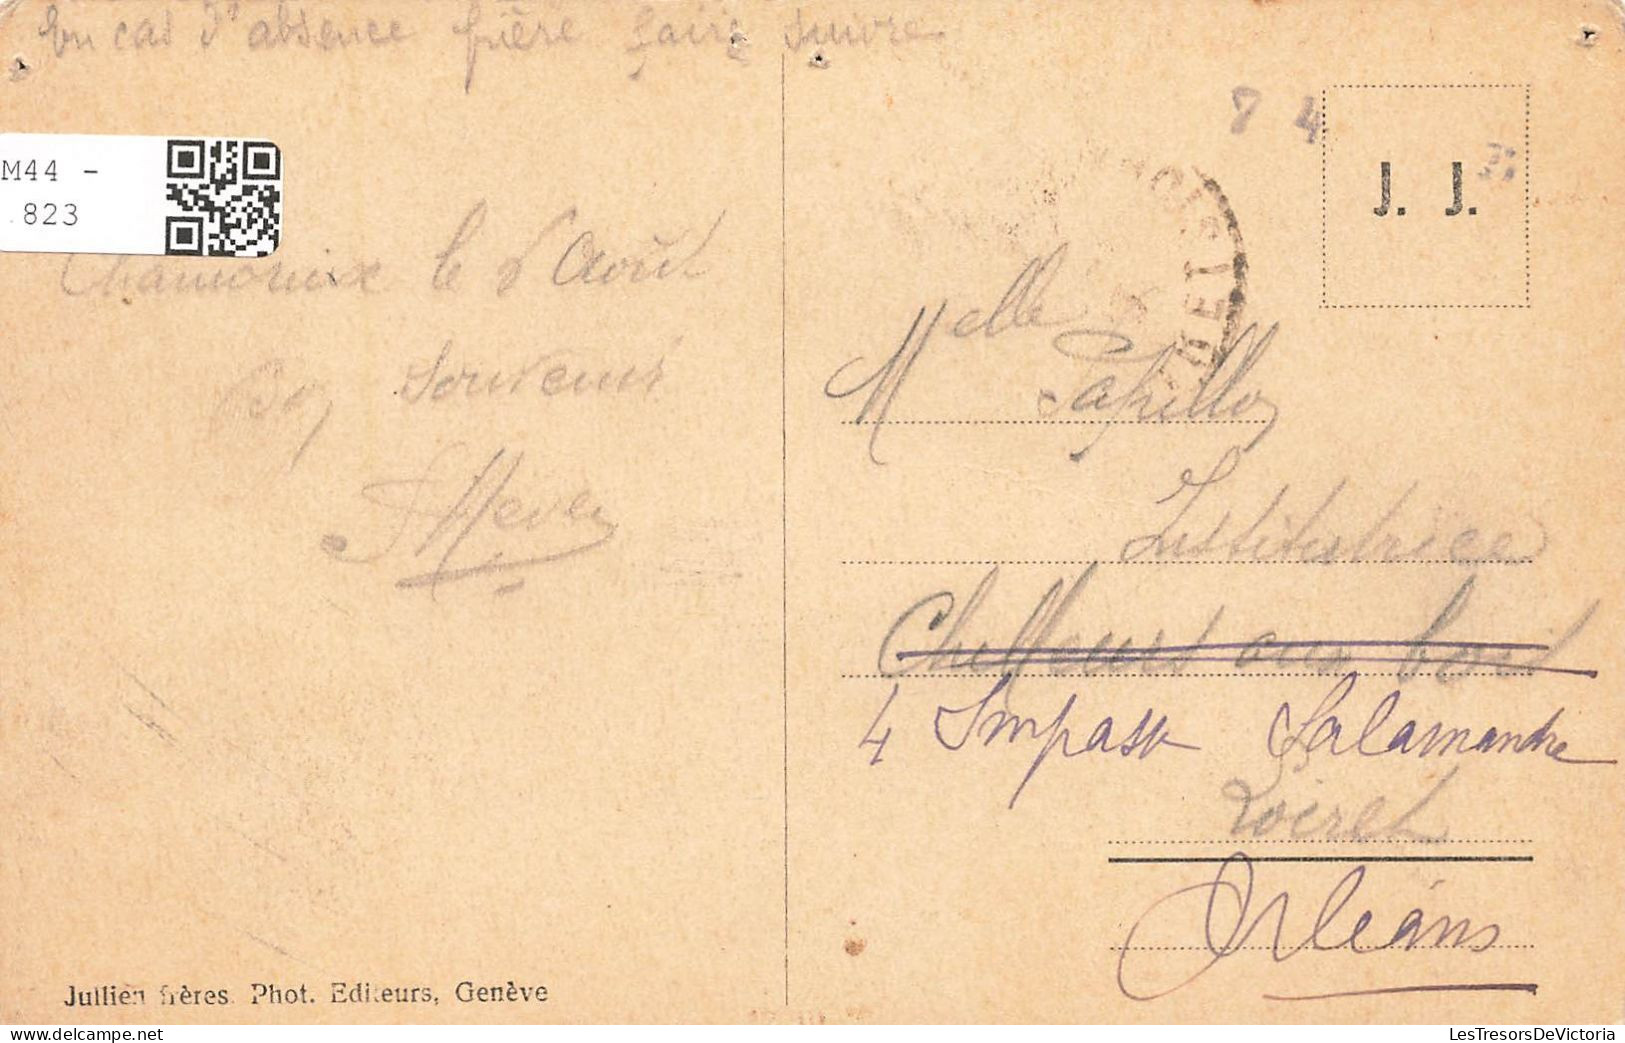 En cas d'absence prière faire suivre
M44 -
823
8 4
J. J.
Chamonix le 8 Août
Bon souvenir
Melle Papillon
Institutrice
Chilleurs aux bois
4 Impasse Salamandre
Loiret
Orléans
Jullien frères. Phot. Editeurs, Genève
LesTresorsDeVictoria